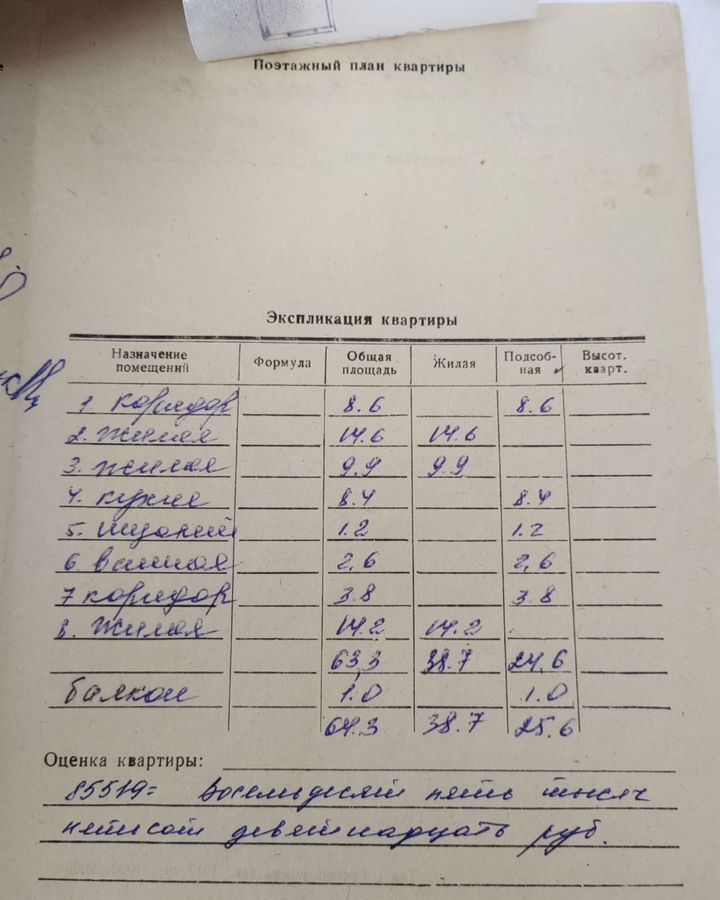 Поэтажный план квартиры
Экспликация квартиры
Назначение помещений Формула Общая площадь Жилая Подсоб-ная Высот. кварт.
1. коридор 8.6 8.6
2. жилая 14.6 14.6
3. жилая 9.9 9.9
4. кухня 8.4 8.4
5. 1.2 1.2
6 ванная 2,6 2,6
7 коридор 3.8 3.8
8. жилая 14.2 14.2
63,3 38.7 24,6
балкон 1.0 1.0
64.3 38.7 25.6
Оценка квартиры:
85519= Восемьдесят пять тысяч
пятьсот девятнадцать руб.